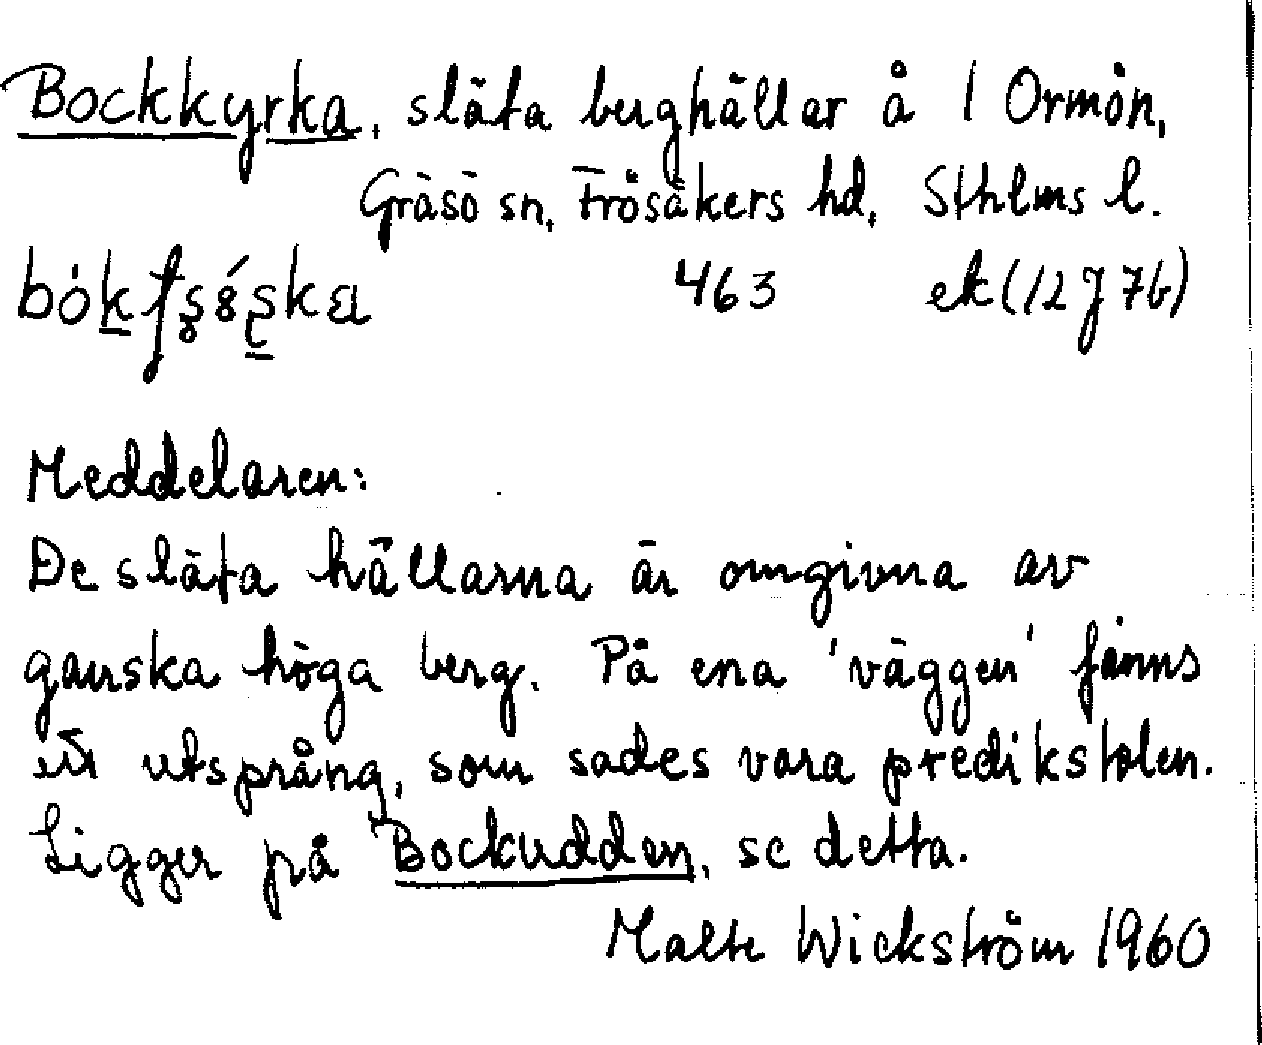 Bockkyrka, släta berghällar å 1 Ormön,
Gräsö sn, Frösåkers hd, Sthlms l.
463 ek (12 J 7b)
Meddelaren:
De släta hällarna är omgivna av
ganska höga berg. På ena 'väggen' finns
ett utsprång, som sades vara predikstolen.
Ligger på Bockudden, se detta.
Malte Wickström 1960